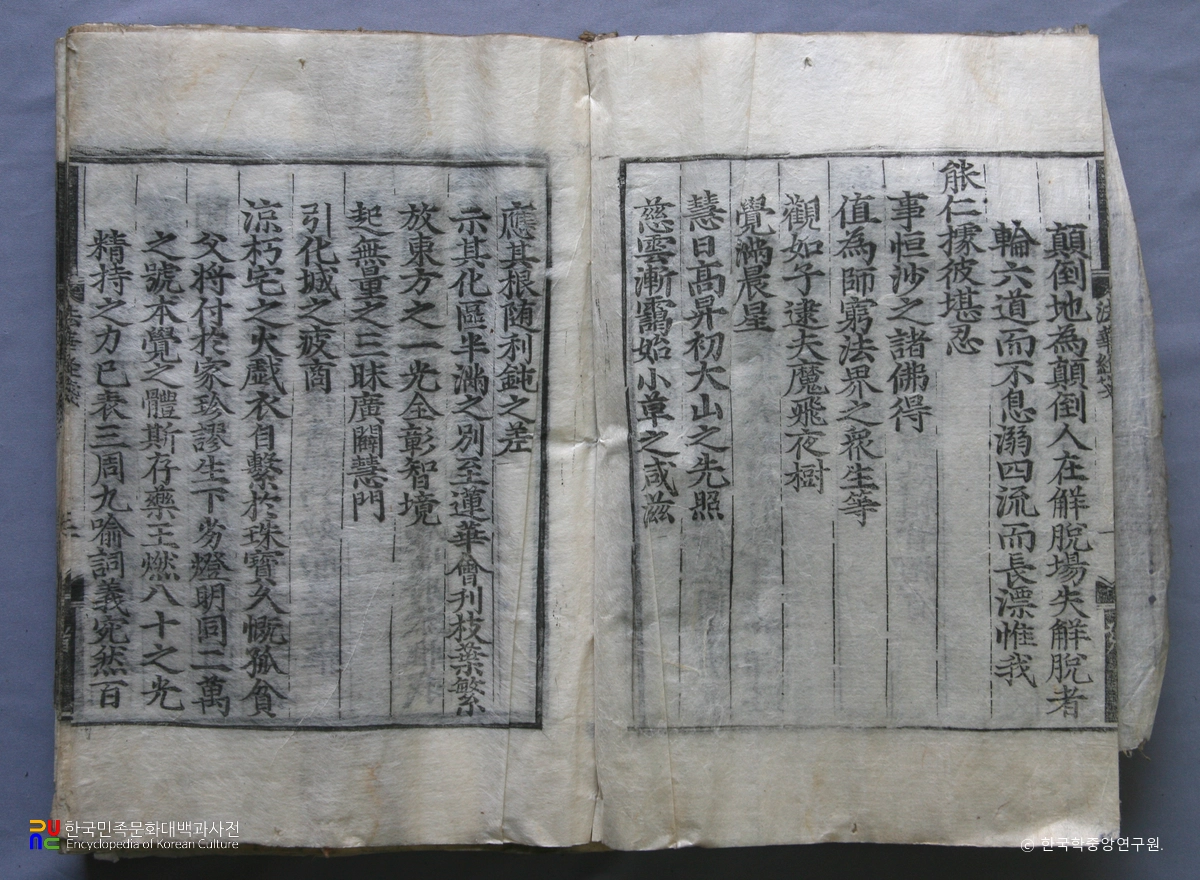 顛倒地為顛倒人在解脫場失解脫者
輪六道而不息溺四流而長漂惟我
能仁據彼堪忍
事恒沙之諸佛得
值為師窮法界之衆生等
觀如子逮夫魔飛夜樹
覺滿晨星
慧日高昇初大山之先照
慈雲漸靄始小草之咸滋
應其根随利鈍之差
示其化區半滿之別至蓮華會刋枝葉繁
放東方之一光全彰智境
起無量之三昧廣闢慧門
引化城之疲商
涼朽宅之火戲衣自繫於珠寶久慨孤貧
父將付於家珍謬生下劣燈明同二萬
之號本覺之體斯存藥王燃八十之光
精持之力已表三周九喻詞義宛然百
한국민족문화대백과사전
Encyclopedia of Korean Culture
© 한국학중앙연구원.